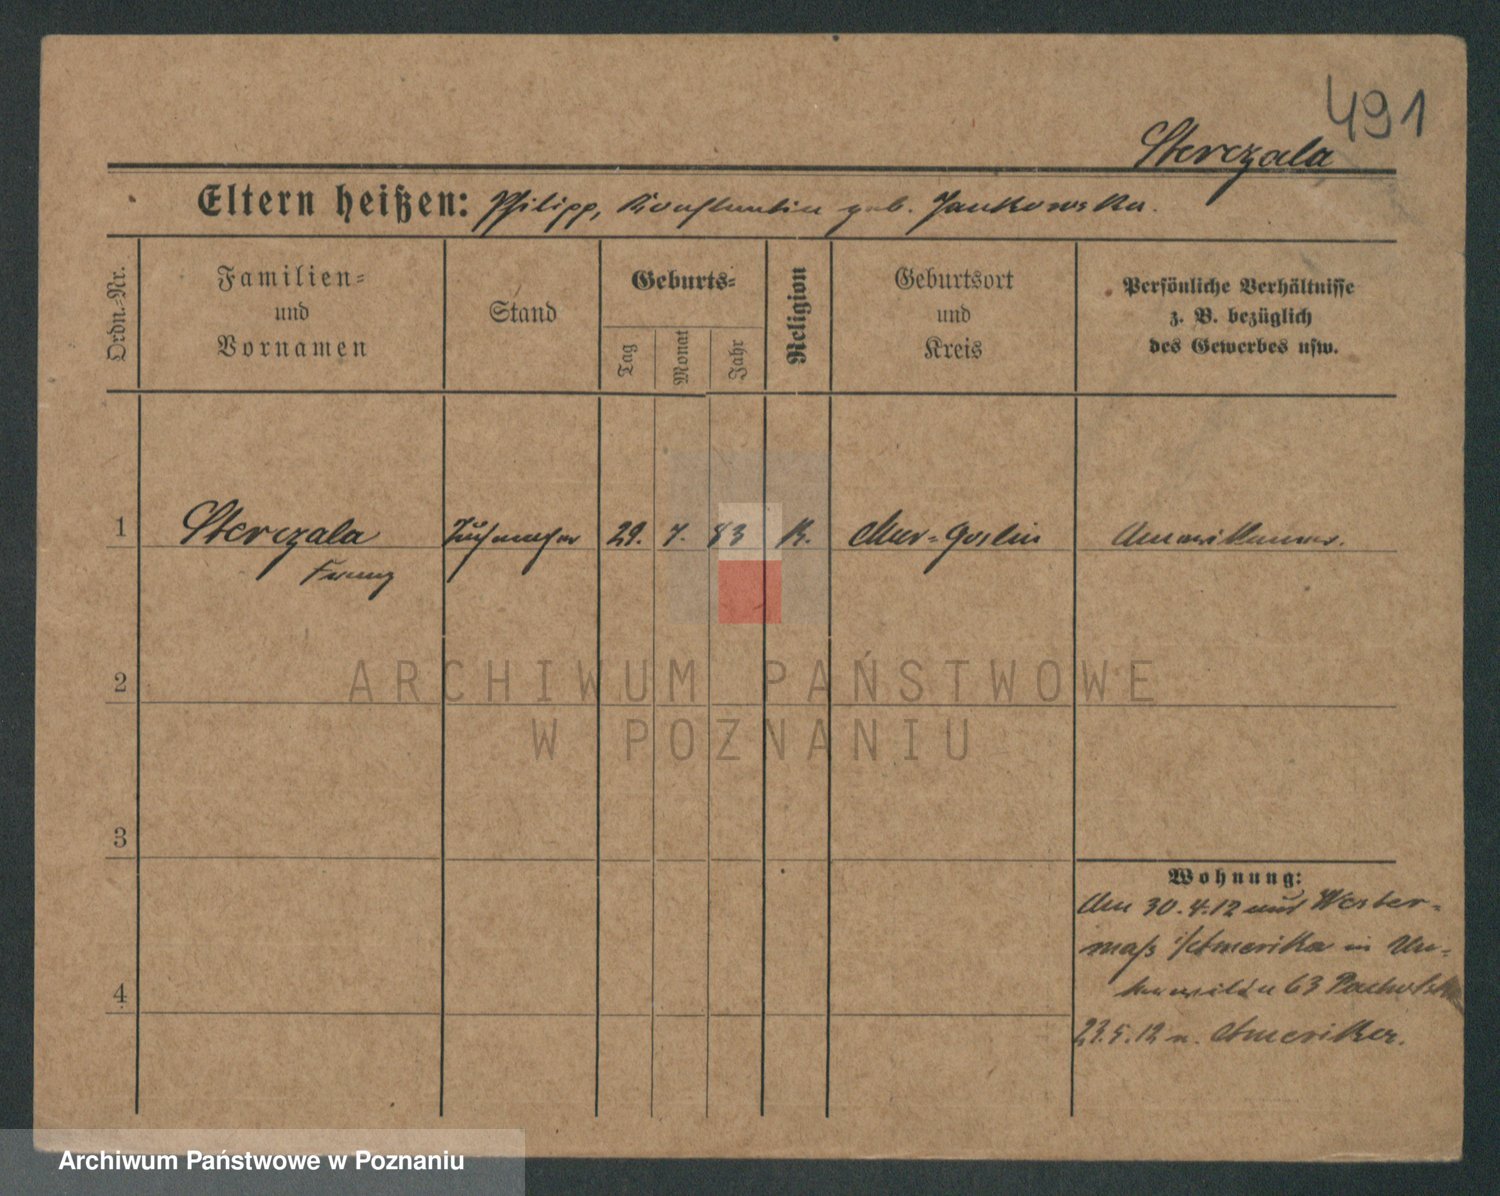 491
Sterczala
Eltern heißen: Philipp, Konstantin geb. Jankowska.
Ordn.-Nr.
Familien-
und
Vornamen
Stand
Geburts-
Tag
Monat
Jahr
Religion
Geburtsort
und
Kreis
Persönliche Verhältnisse
z. B. bezüglich
des Gewerbes usw.
1 Sterczala 29. 7. 83 K. Mur-Goslin Amerikaner.
Franz
ARCHIWUM PAŃSTWOWE
2
W POZNANIU
3
Wohnung:
Am 30.4.12 aus Wester-
maß i/Amerika in
63
4
23.5.12 n. Amerika.
Archiwum Państwowe w Poznaniu